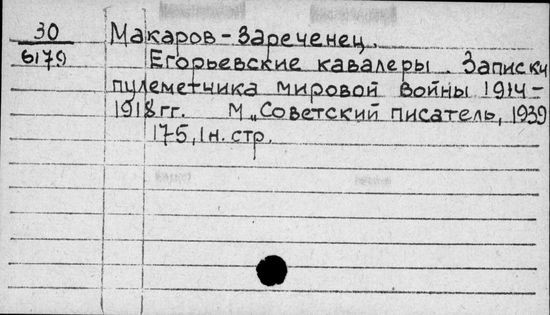 30 Макаров-Зареченец.
6179 Егорьевские кавалеры. Записки
пулеметчика мировой войны 1914-
1918 гг. М„Советский писатель, 1939
175, 1н. стр.